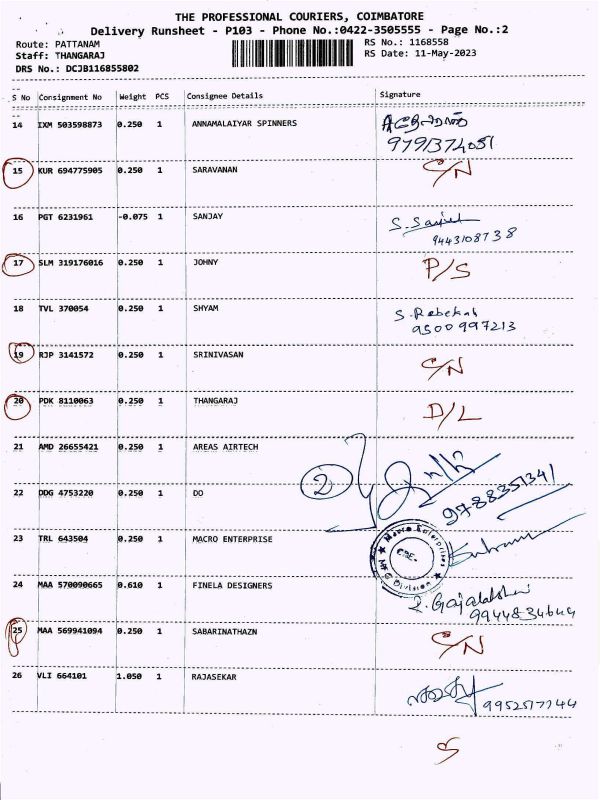 THE PROFESSIONAL COURIERS, COIMBATORE
Delivery Runsheet - P103 - Phone No.:0422-3505555 - Page No.:2
Route: PATTANAM RS No.: 1168558
Staff: THANGARAJ RS Date: 11-May-2023
DRS No.: DCJB116855802
S No Consignment No Weight PCS Consignee Details Signature
14 IXM 503598873 0.250 1 ANNAMALAIYAR SPINNERS
9791374051
15 KUR 694775905 0.250 1 SARAVANAN C/N
16 PGT 6231961 -0.075 1 SANJAY S. Sanjeet
9443108738
17 SLM 319176016 0.250 1 JOHNY P/S
18 TVL 370054 0.250 1 SHYAM S. Rebekah
9500997213
19 RJP 3141572 0.250 1 SRINIVASAN C/N
20 PDK 8110063 0.250 1 THANGARAJ D/L
21 AMD 26655421 0.250 1 AREAS AIRTECH
22 DDG 4753220 0.250 1 DO 2 9788351341
23 TRL 643504 0.250 1 MACRO ENTERPRISE Macro Enterprises CBE. Mfg Division
24 MAA 570090665 0.610 1 FINELA DESIGNERS
9944834644
25 MAA 569941094 0.250 1 SABARINATHAZN C/N
26 VLI 664101 1.050 1 RAJASEKAR 9952577744
5